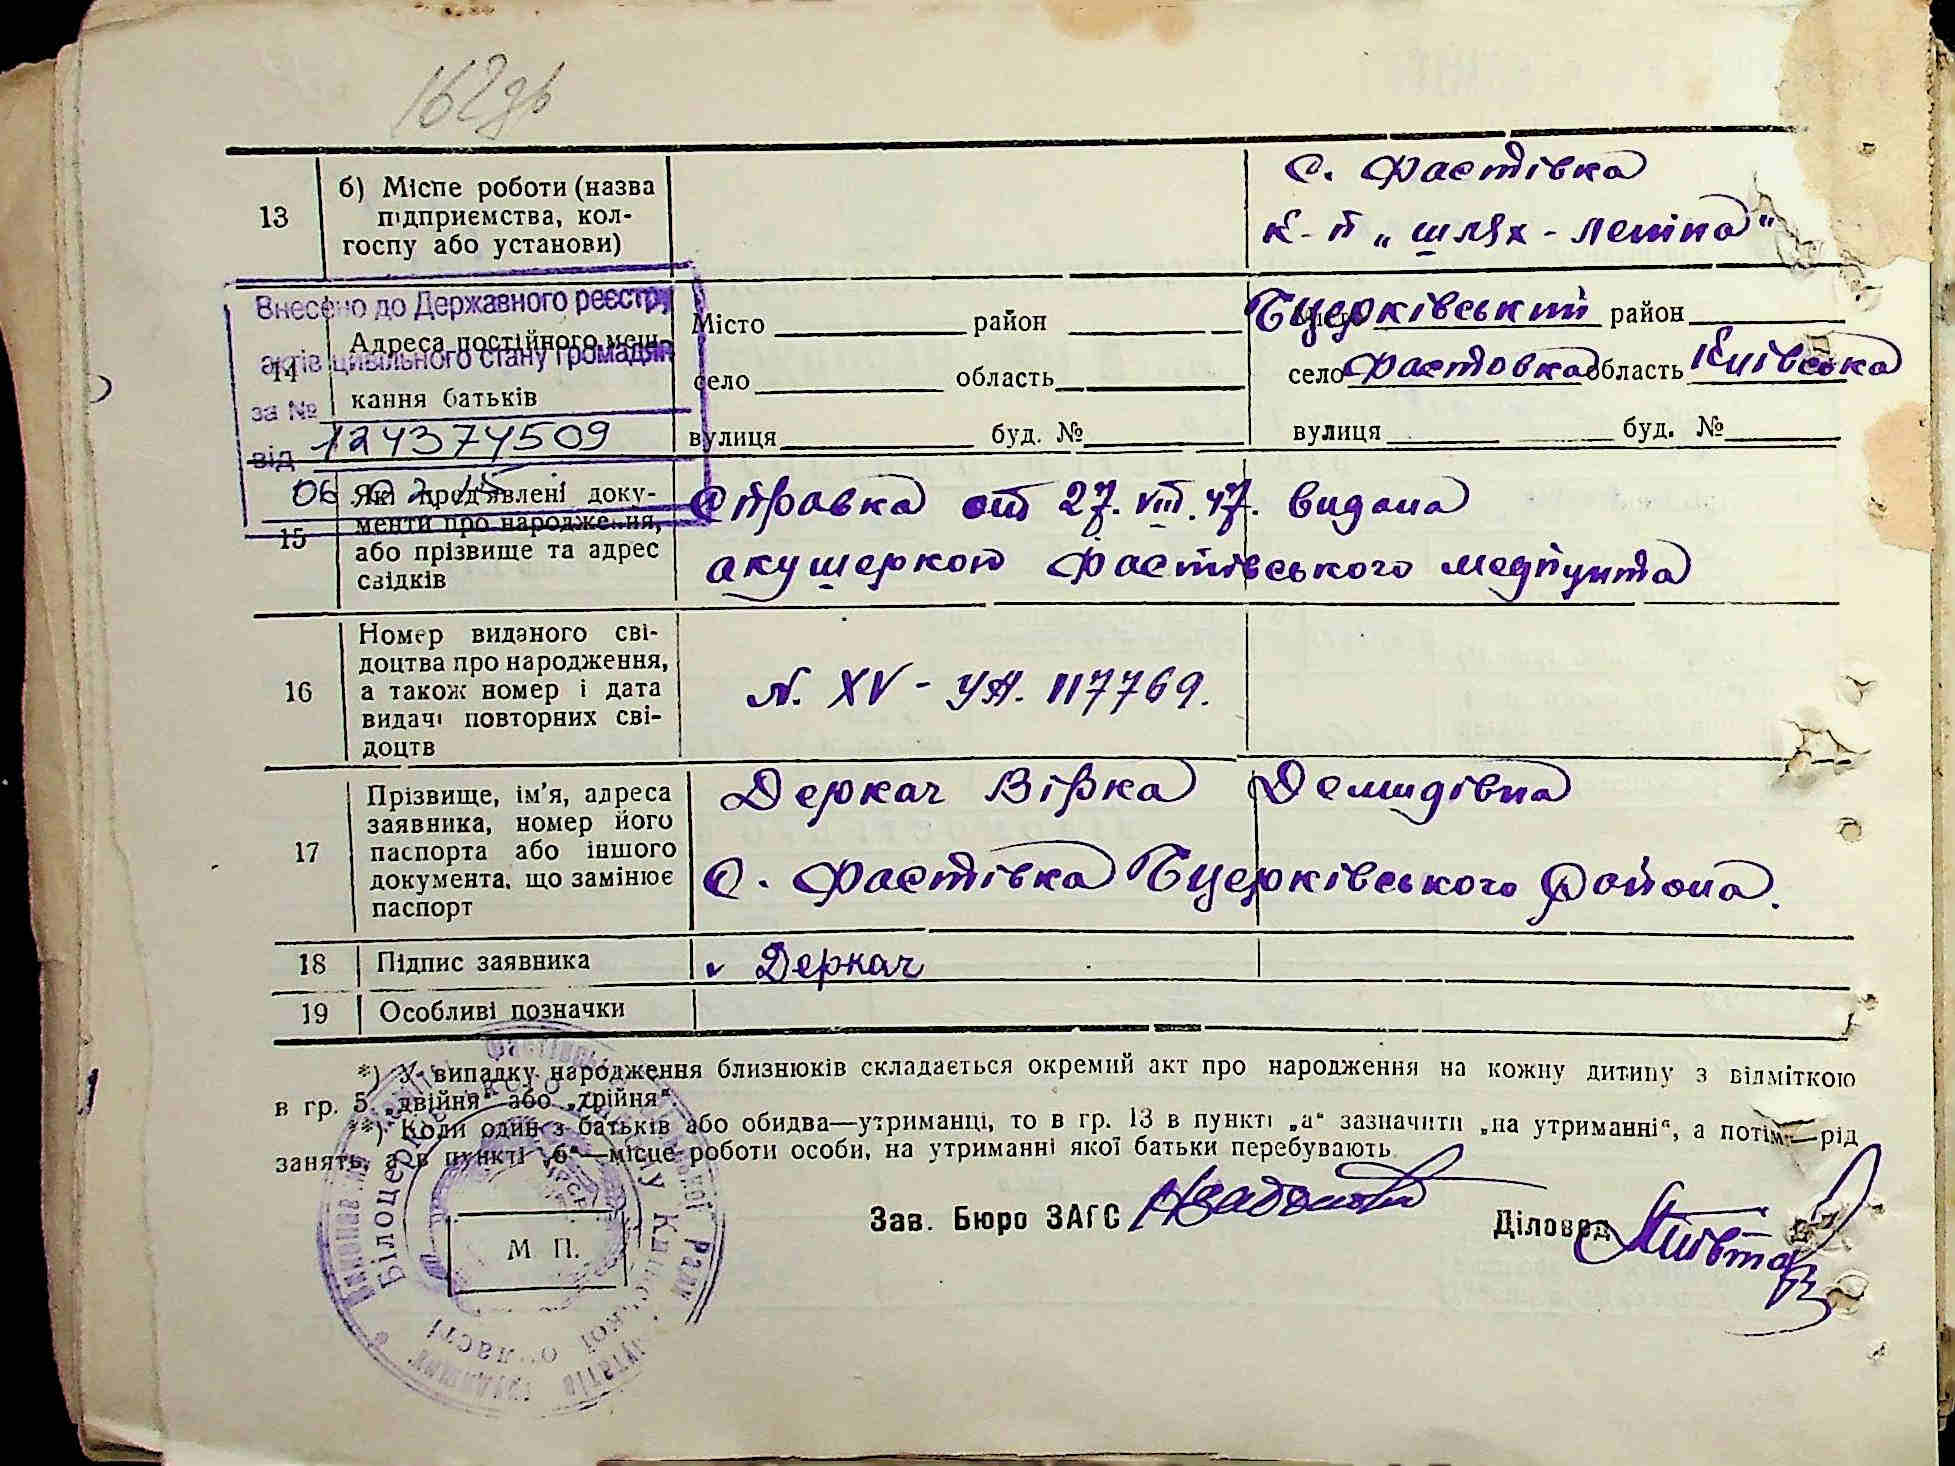 162зв
13
б) Місце роботи (назва
підприємства, кол-
госпу або установи)
с. Фастівка
к-п „Шлях-Леніна"
Внесено до Державного реєстру
актів цивільного стану громадян
за №
124374509
від
06
14
Адреса постійного меш-
кання батьків
Місто район
село область
вулиця буд. №
Бцерківський район
село Фастовка область Київська
вулиця буд. №
15
Які пред'явлені доку-
менти про народження,
або прізвище та адрес
свідків
Справка от 27.VIII.47. видана
акушеркою Фастівського медпункта
16
Номер виданого сві-
доцтва про народження,
а також номер і дата
видачі повторних сві-
доцтв
N. XV - УА. 117769.
17
Прізвище, ім'я, адреса
заявника, номер його
паспорта або іншого
документа, що замінює
паспорт
Деркач Вірка Демидівна
с. Фастівка Бцерківського района.
18
Підпис заявника
v Деркач
19
Особливі позначки
*) У випадку народження близнюків складається окремий акт про народження на кожну дитину з відміткою
в гр. 5 „двійня" або „трійня"
**) Коли один з батьків або обидва—утриманці, то в гр. 13 в пункті „а" зазначити „на утриманні", а потім—рід
занять, а в пункті „б"—місце роботи особи, на утриманні якої батьки перебувають
Зав. Бюро ЗАГС
Діловод
М П.